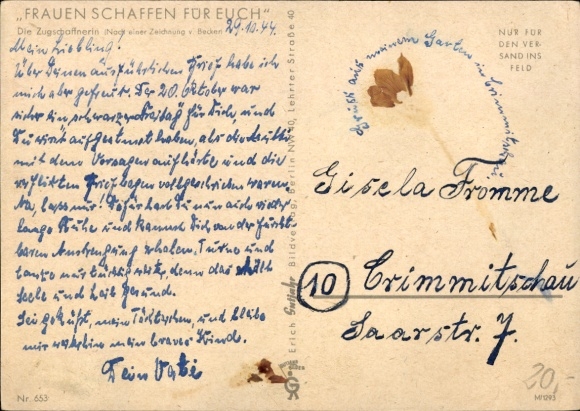 „FRAUEN SCHAFFEN FÜR EUCH"
Die Zugschaffnerin (Nach einer Zeichnung v. Becken
29.10.44.
Mein Liebling!
Über Deinen ausführlichen Brief habe ich
mich aber gefreut. Der 20. Oktober war
sicher ein schwarzer Freitag für Dich, und
Du wirst aufgeatmet haben, als die
mit dem Versagen aufhörte und die
verflixten Briefbogen vollgeschrieben waren.
Na, lass nur! Dafür hast Du nun auch wieder
lange Ruhe und kannst Dich von der furcht-
baren Anstrengung erholen. Turne und
tanze nur weiter, denn das erhält
Seele und Leib gesund.
Sei geküßt, mein Töchterchen, und bleibe
mir weiterhin mein braves Kind.
Dein Vati
Nr. 653
Erich Gutjahr Bildverlag, Berlin NW 40, Lehrter Straße 40
NUR FÜR
DEN VER-
SAND INS
FELD
Gruß aus meinem Garten in Crimmitschau
Gisela Fromme
10 Crimmitschau
Saarstr. 7.
20,-
M/1293